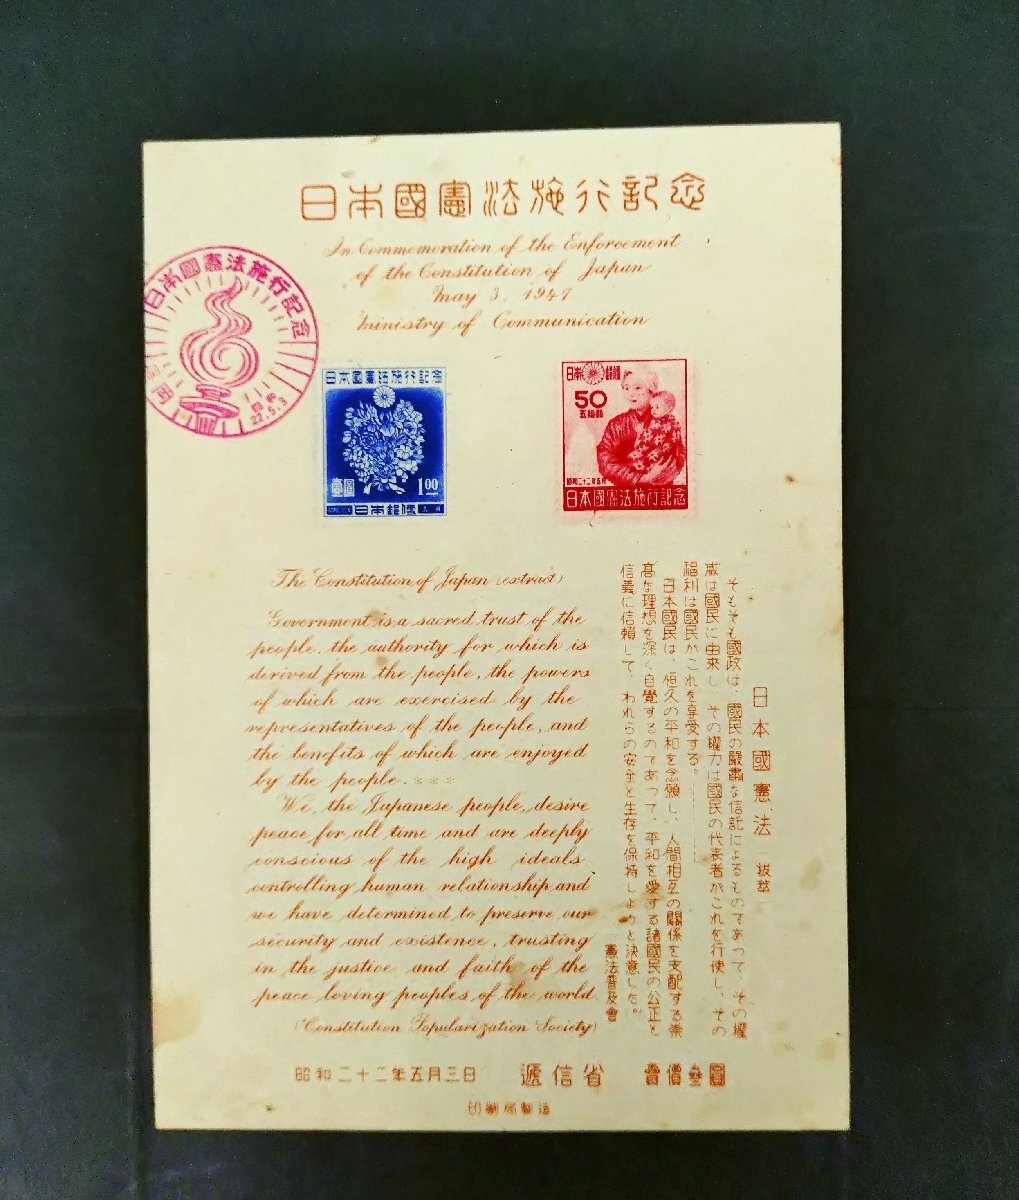 日本國憲法施行記念
In Commemoration of the Enforcement
of the Constitution of Japan
May 3, 1947
Ministry of Communication
日本國憲法施行記念
22.5.3
日本國憲法施行記念
壹圓
1.00
日本郵便
日本郵便
50
五拾錢
昭和二十二年五月
日本國憲法施行記念
The Constitution of Japan (extract)
Government is a sacred trust of the
people, the authority for which is
derived from the people, the powers
of which are exercised by the
representatives of the people, and
the benefits of which are enjoyed
by the people. ***
We, the Japanese people, desire
peace for all time and are deeply
conscious of the high ideals
controlling human relationship and
we have determined to preserve our
security and existence, trusting
in the justice and faith of the
peace loving peoples of the world
(Constitution Popularization Society)
日本國憲法(拔萃)
そもそも國政は、國民の嚴肅な信託によるものであつて、その權
威は國民に由來し、その權力は國民の代表者がこれを行使し、その
福利は國民がこれを享受する。
日本國民は、恒久の平和を念願し、人間相互の關係を支配する崇
高な理想を深く自覺するのであつて、平和を愛する諸國民の公正と
信義に信賴して、われらの安全と生存を保持しようと決意した。
(憲法普及會)
昭和二十二年五月三日 遞信省 賣價參圓
印刷局製造